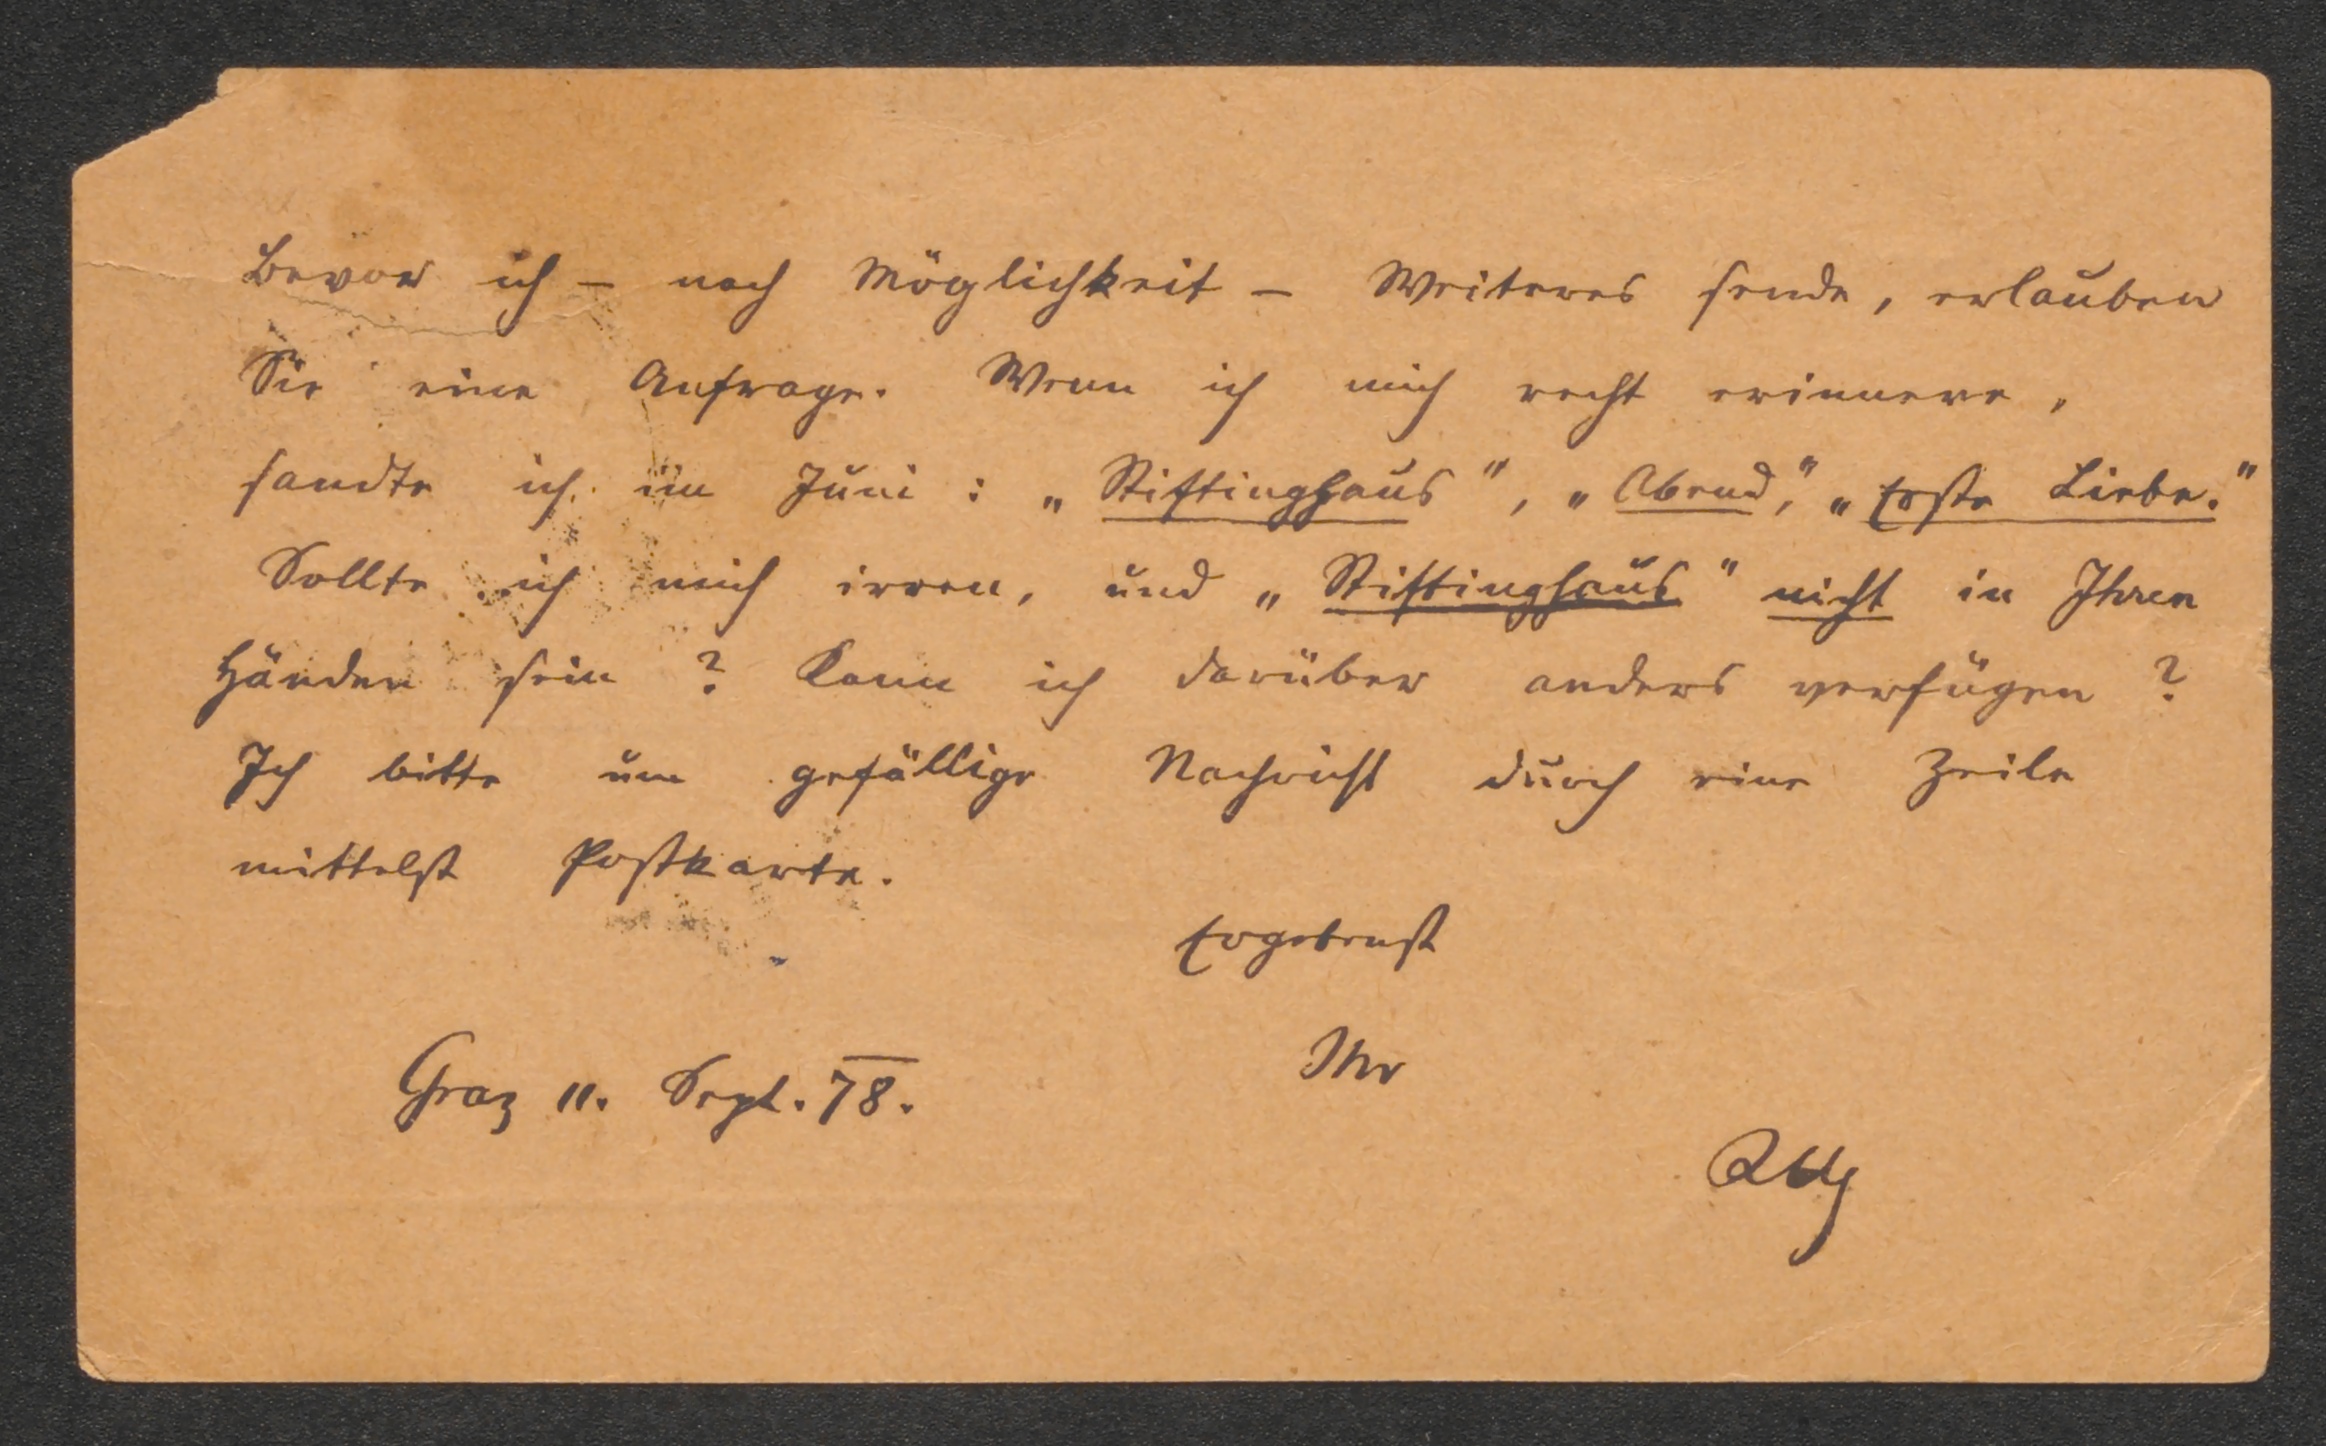 Bevor ich – nach Möglichkeit – Weiteres sende, erlauben
Sie eine Anfrage. Wenn ich mich recht erinnere,
sandte ich im Juni: „Stiftinghaus", „Abend", „Erste Liebe."
Sollte ich mich irren, und „Stiftinghaus" nicht in Ihren
Händen sein? Kann ich darüber anders verfügen?
Ich bitte um gefällige Nachricht durch eine Zeile
mittelst Postkarte.
Ergebenst
Ihr
Graz 11. Sept. 78.